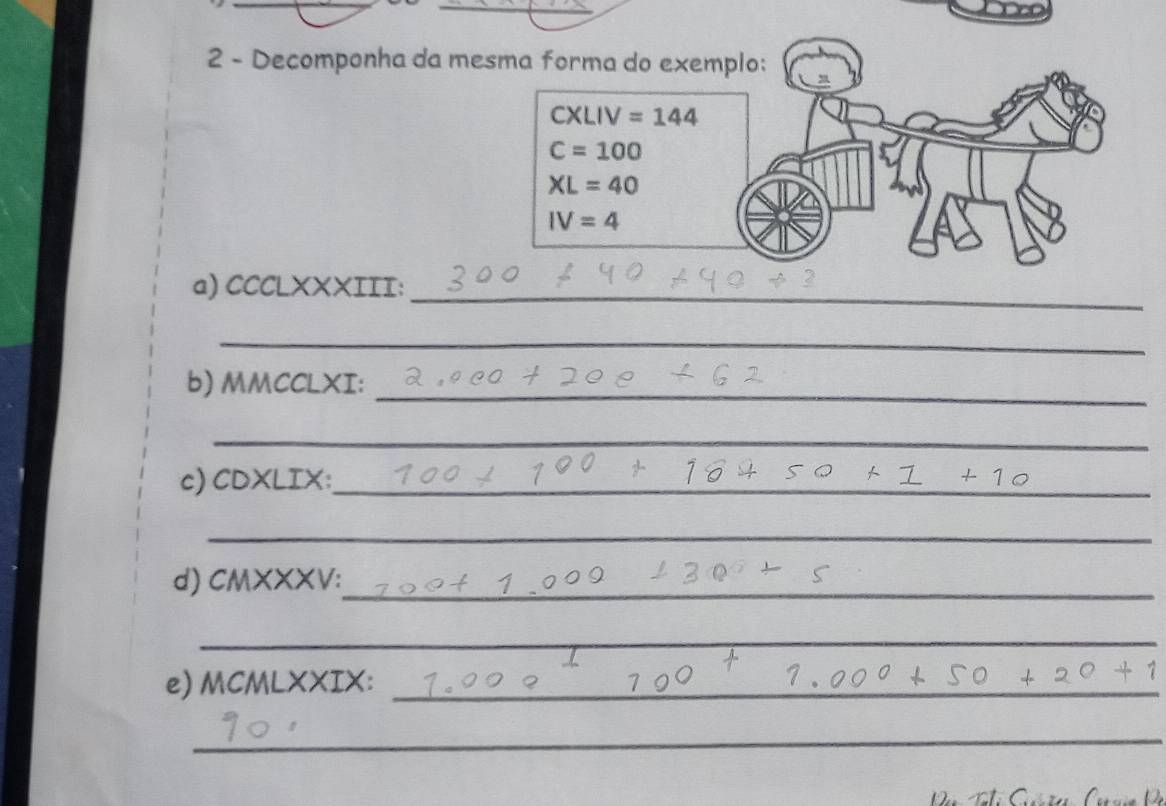 2 - Decomponha da mesma forma do exemplo:
CXLIV = 144
C = 100
XL = 40
IV = 4
a) CCCLXXXIII: 300 + 40 + 40 + 3
b) MMCCLXI: 2.000 + 200 + 62
c) CDXLIX: 100 + 100 + 10 + 50 + 1 + 10
d) CMXXXV: 100 + 1.000 + 30 + 5
e) MCMLXXIX: 1.000 + 100 + 1.000 + 50 + 20 + 1
90.